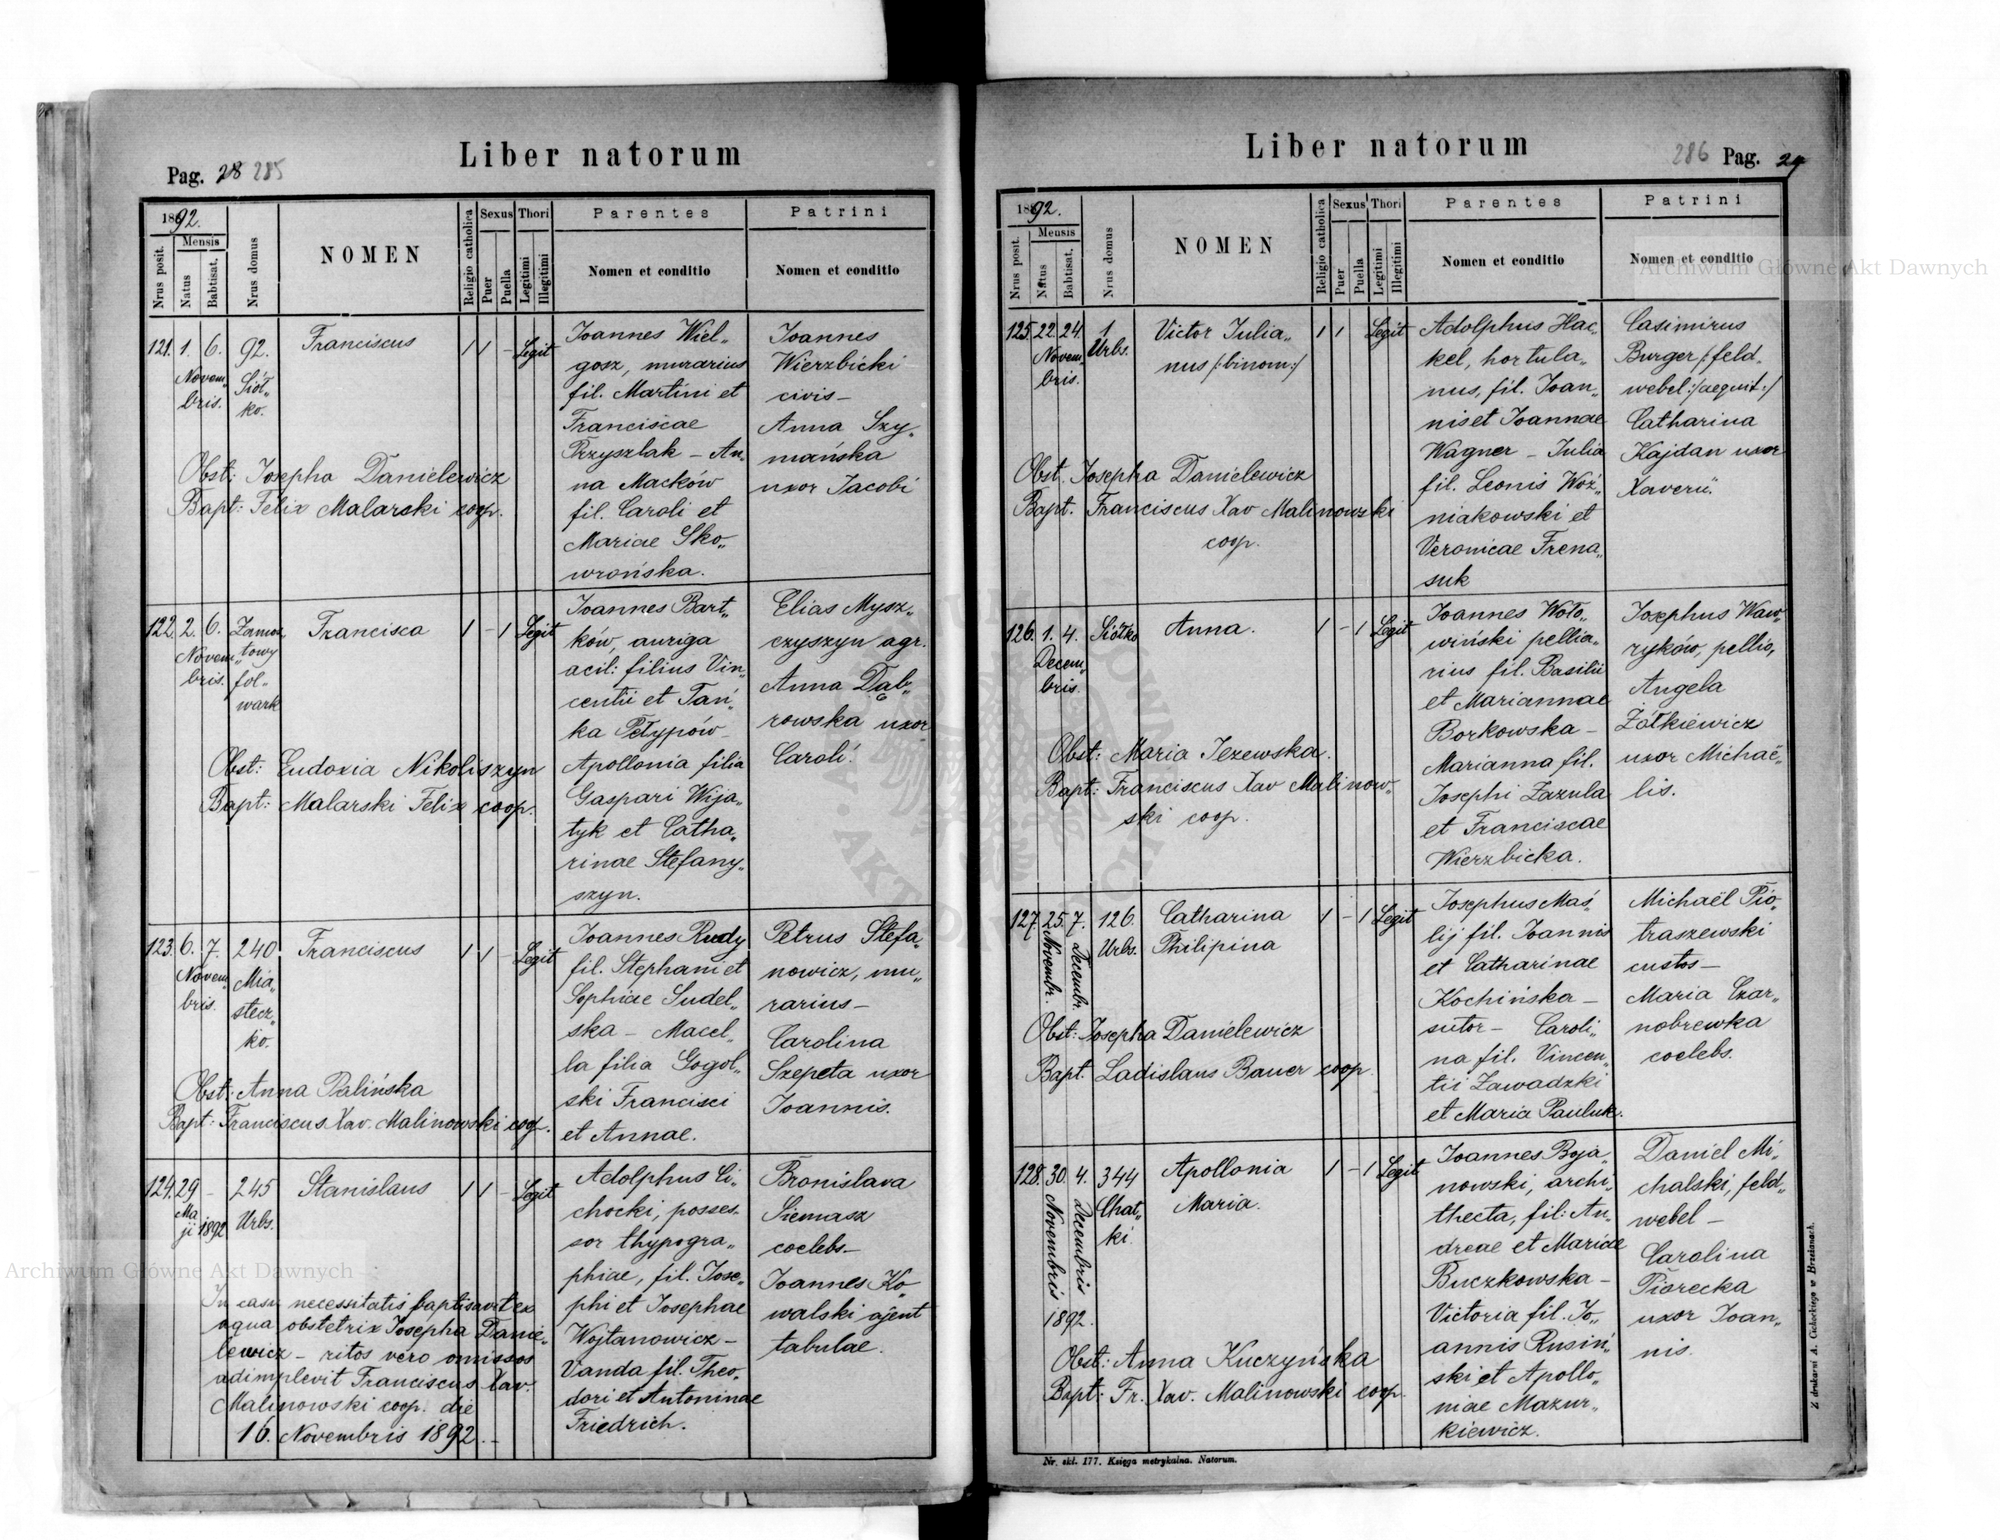 Liber natorum
Pag. 28 285
1892.
Nrus posit.
Mensis
Natus
Babtisat.
Nrus domus
NOMEN
Religio catholica
Sexus
Puer
Puella
Thori
Legitimi
Illegitimi
Parentes
Nomen et conditio
Patrini
Nomen et conditio
121. 1. 6. 92. Franciscus 1 1 - Legit
Novem„
bris.
Siół„
ko.
Obst: Josepha Danielewicz
Bapt: Felix Malarski coop.
Joannes Wiel„
gosz, murarius
fil. Martini et
Franciscae
Przyszlak – An„
na Macków
fil. Caroli et
Mariae Sko„
wrońska.
Joannes
Wierzbicki
civis –
Anna Szy„
mańska
uxor Jacobi
122. 2. 6. Zamoz„ Francisca 1 - 1 Legit
Novem„
bris.
towy
fol„
wark
Obst: Eudoxia Nikoliszyn
Bapt: Malarski Felix coop.
Joannes Bart„
ków, auriga
acil: filius Vin„
centii et Tań„
ka Petypów –
Apollonia filia
Gaspari Wija„
tyk et Catha„
rinae Stefany„
szyn.
Elias Mysz„
czyszyn agr.
Anna Dąb„
rowska uxor
Caroli.
123. 6. 7. 240 Franciscus 1 1 - Legit
Novem„
bris.
Mia„
stecz„
ko.
Obst: Anna Palińska
Bapt: Franciscus Xav. Malinowski coop.
Joannes Rudy
fil. Stephani et
Sophiae Sudel„
ska – Macel„
la filia Gogol„
ski Francisci
et Annae.
Petrus Stefa„
nowicz, mu„
rarius –
Carolina
Szepeta uxor
Joannis.
124. 29 – 245 Stanislaus 1 1 - Legit
Ma
ji 1892
Urbs.
In casu necessitatis baptisavit ex
aqua obstetrix Josepha Danie„
lewicz – ritos vero omissos
adimplevit Franciscus Xav.
Malinowski coop. die
16. Novembris 1892. –
Adolphus Ci„
chocki, posses„
sor thypogra„
phiae, fil. Jose„
phi et Josephae
Wojtanowicz –
Vanda fil. Theo„
dori et Antoninae
Friedrich.
Bronislava
Siemasz
coelebs –
Joannes Ko„
walski ajent
tabulae.
Liber natorum
286 Pag. 29
1892.
Nrus posit.
Mensis
Natus
Babtisat.
Nrus domus
NOMEN
Religio catholica
Sexus
Puer
Puella
Thori
Legitimi
Illegitimi
Parentes
Nomen et conditio
Patrini
Nomen et conditio
125. 22. 24. 1 Victor Julia„ 1 1 Legit
Novem„
bris.
Urbs.
nus /:binom:/
Obst. Josepha Danielewicz
Bapt. Franciscus Xav Malinowski
coop.
Adolphus Hac„
kel, hortula„
nus, fil. Joan„
nis et Joannae
Wagner – Julia
fil. Leonis Woź„
niakowski et
Veronicae Frena„
suk
Casimirus
Burger /:feld„
webel:/
Catharina
Kajdan uxor
Xaverii.
126. 1. 4. Siółko Anna. 1 - 1 Legit
Decem„
bris.
Obst: Maria Jezewska.
Bapt: Franciscus Xav Malinow„
ski coop.
Joannes Woło„
wiński pellia„
rius fil. Basilii
et Mariannae
Borkowska –
Marianna fil.
Josephi Zazula
et Franciscae
Wierzbicka.
Josephus Waw„
ryków, pellio,
Angela
Żółkiewicz
uxor Michaë„
lis.
127. 25. 7. 126. Catharina 1 - 1 Legit
Novembr.
Decembr.
Urbs.
Philipina
Obst: Josepha Danielewicz
Bapt. Ladislaus Bauer coop.
Josephus Maś„
lij fil. Joannis
et Catharinae
Kochińska –
sutor – Caroli„
na fil. Vincen„
tii Zawadzki
et Maria Pauluk.
Michaël Pio„
traszewski
custos –
Maria Czar„
nobrewka
coelebs.
128. 30. 4. 344 Apollonia 1 - 1 Legit
Novembris
Decembris
1892.
Chat„
ki.
Maria.
Obst: Anna Kuczyńska
Bapt: Fr. Xav. Malinowski coop.
Joannes Boja„
nowski, archi„
thecta, fil: An„
dreae et Mariae
Buczkowska –
Victoria fil. Jo„
annis Rusiń„
ski et Apollo„
niae Mazur„
kiewicz.
Daniel Mi„
chalski, feld„
webel –
Carolina
Piorecka
uxor Joan„
nis.
Z drukarni A. Cichockiego w Brzeżanach.
Nr. skl. 177. Księga metrykalna. Natorum.
Archiwum Główne Akt Dawnych
Archiwum Główne Akt Dawnych